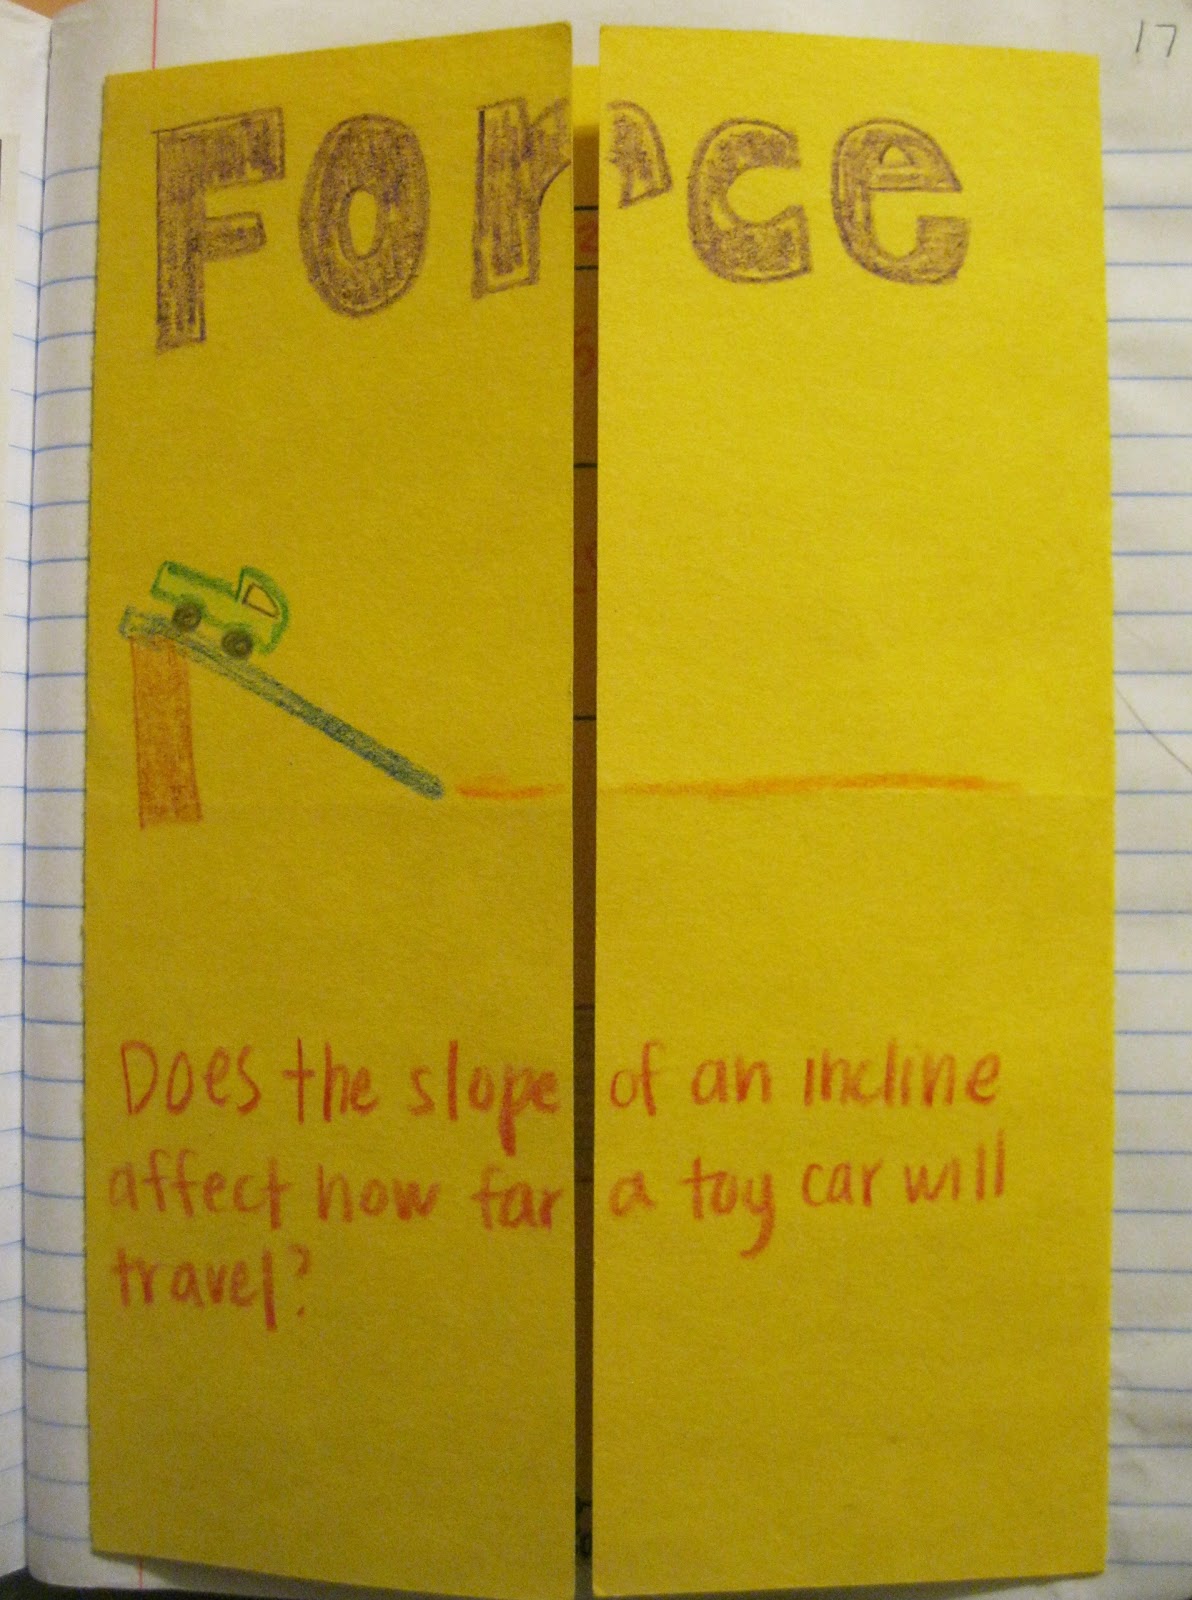 17
Force
Does the slope of an incline
affect how far a toy car will
travel?